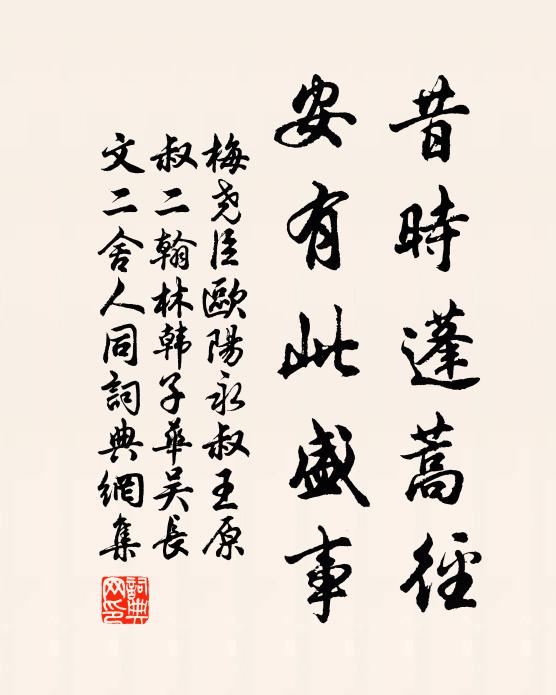 昔時蓬蒿徑
安有此盛事
梅堯臣歐陽永叔王原
叔二翰林韩子華吴長
文二舍人同詞典網集
詞典網印